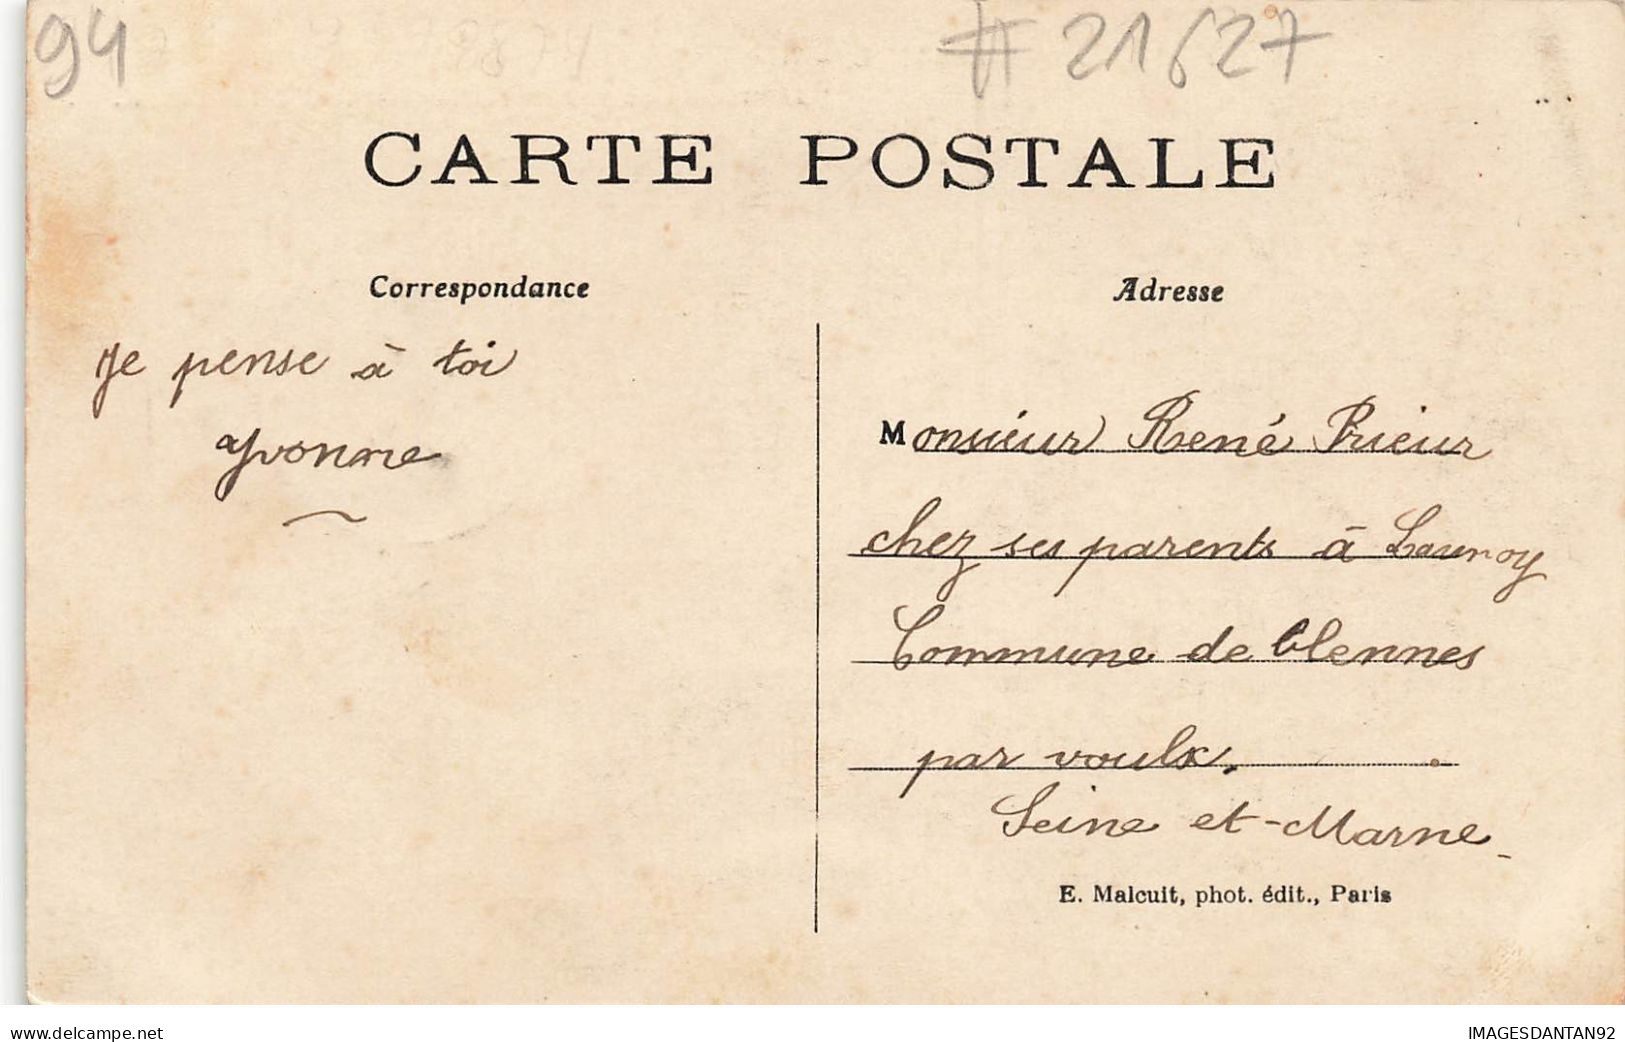 94
# 21627
CARTE POSTALE
Correspondance
Adresse
Je pense à toi
Yvonne
Monsieur René Prieur
chez ses parents à Launoy
Commune de Blennes
par voulx.
Seine et-Marne
E. Malcuit, phot. édit., Paris
www.delcampe.net
IMAGESDANTAN92